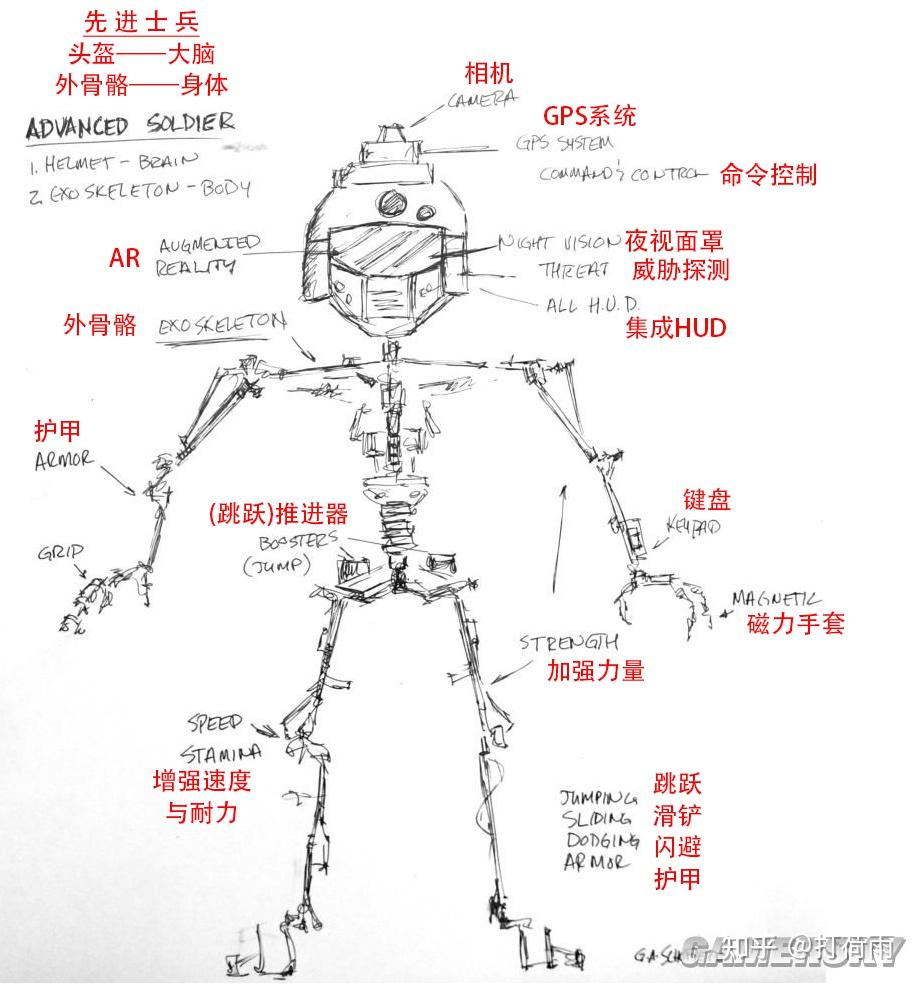 先进士兵
头盔——大脑
外骨骼——身体
ADVANCED SOLDIER
1. HELMET - BRAIN
2. EXOSKELETON - BODY
相机
CAMERA
GPS系统
GPS SYSTEM
COMMAND & CONTROL 命令控制
AR AUGMENTED
REALITY
NIGHT VISION 夜视面罩
THREAT 威胁探测
ALL H.U.D.
集成HUD
外骨骼 EXOSKELETON
护甲
ARMOR
(跳跃)推进器
BOOSTERS
(JUMP)
键盘
KEYPAD
GRIP
MAGNETIC
磁力手套
STRENGTH
加强力量
SPEED
STAMINA
增强速度
与耐力
JUMPING 跳跃
SLIDING 滑铲
DODGING 闪避
ARMOR 护甲
知乎 @打荷雨